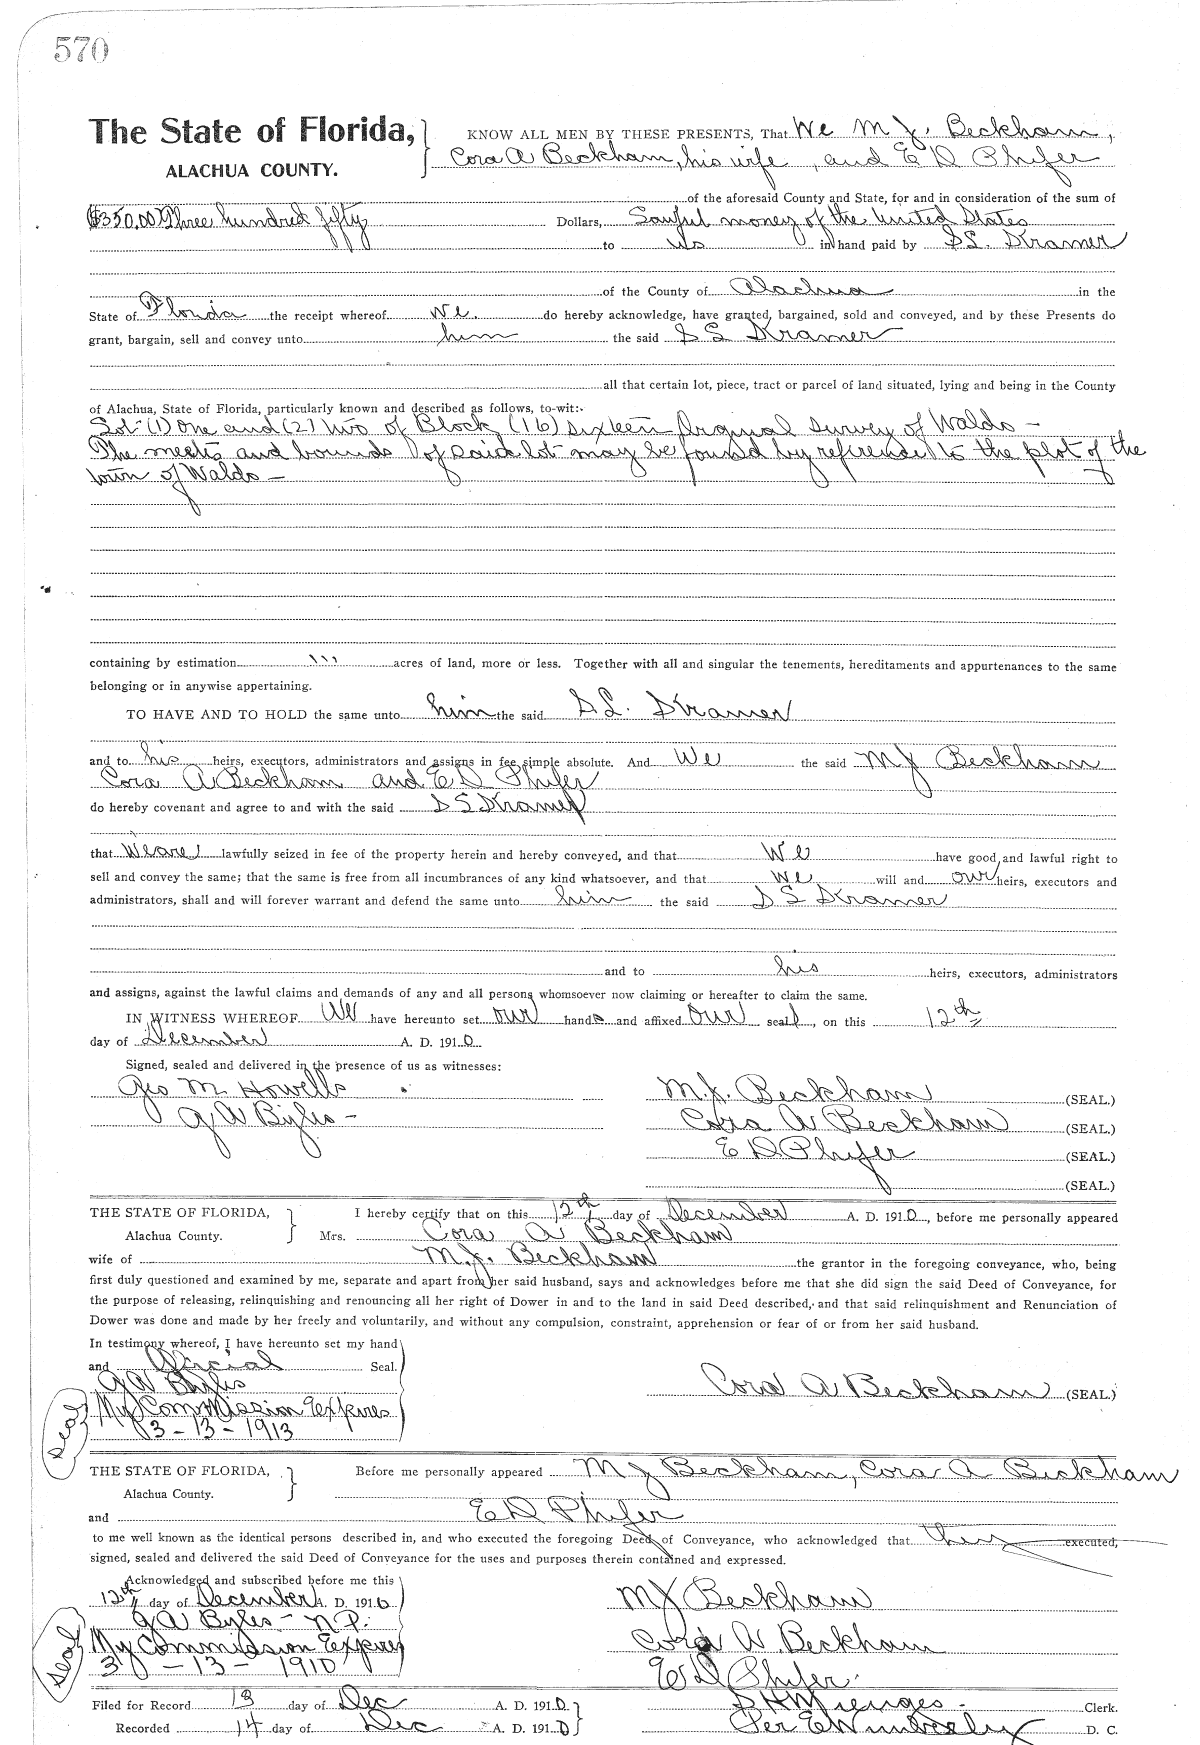 570
The State of Florida, KNOW ALL MEN BY THESE PRESENTS, That We M J. Beckham,
ALACHUA COUNTY. Cora A Beckham, his wife, and E D Phifer
of the aforesaid County and State, for and in consideration of the sum of
($350.00) Three hundred fifty Dollars, Lawful money of the United States
to us in hand paid by Kramer
of the County of Alachua in the
State of Florida the receipt whereof we do hereby acknowledge, have granted, bargained, sold and conveyed, and by these Presents do
grant, bargain, sell and convey unto him the said Kramer
all that certain lot, piece, tract or parcel of land situated, lying and being in the County
of Alachua, State of Florida, particularly known and described as follows, to-wit:-
Lot (1) One and (2) two of Block (16) sixteen survey of Waldo -
The meets and bounds of said lot may be found by to the plot of the
town of Waldo -
containing by estimation acres of land, more or less. Together with all and singular the tenements, hereditaments and appurtenances to the same
belonging or in anywise appertaining.
TO HAVE AND TO HOLD the same unto him the said Kramer
and to his heirs, executors, administrators and assigns in fee simple absolute. And We the said M J Beckham
Cora A Beckham and E D Phifer
do hereby covenant and agree to and with the said Kramer
that We are lawfully seized in fee of the property herein and hereby conveyed, and that We have good and lawful right to
sell and convey the same; that the same is free from all incumbrances of any kind whatsoever, and that we will and our heirs, executors and
administrators, shall and will forever warrant and defend the same unto him the said Kramer
and to his heirs, executors, administrators
and assigns, against the lawful claims and demands of any and all persons whomsoever now claiming or hereafter to claim the same.
IN WITNESS WHEREOF We have hereunto set our hands and affixed our seal, on this 12th
day of December A. D. 1910
Signed, sealed and delivered in the presence of us as witnesses:
Geo M. Howells M. J. Beckham (SEAL.)
G A Byles - Cora A Beckham (SEAL.)
E D Phifer (SEAL.)
(SEAL.)
THE STATE OF FLORIDA, I hereby certify that on this 12th day of December A. D. 1910, before me personally appeared
Alachua County. Mrs. Cora A Beckham
wife of M. J. Beckham the grantor in the foregoing conveyance, who, being
first duly questioned and examined by me, separate and apart from her said husband, says and acknowledges before me that she did sign the said Deed of Conveyance, for
the purpose of releasing, relinquishing and renouncing all her right of Dower in and to the land in said Deed described, and that said relinquishment and Renunciation of
Dower was done and made by her freely and voluntarily, and without any compulsion, constraint, apprehension or fear of or from her said husband.
In testimony whereof, I have hereunto set my hand
and Official Seal.
G A Byles Cora A Beckham (SEAL.)
Seal My Commission Expires
3-13-1913
THE STATE OF FLORIDA, Before me personally appeared M J Beckham, Cora A Beckham
Alachua County.
and E D Phifer
to me well known as the identical persons described in, and who executed the foregoing Deed of Conveyance, who acknowledged that they executed,
signed, sealed and delivered the said Deed of Conveyance for the uses and purposes therein contained and expressed.
Acknowledged and subscribed before me this
12th day of December A. D. 1910 M J Beckham
G A Byles - N P.
Seal My Commission Expires Cora A. Beckham
3 - 13 - 1910 E D Phifer.
Filed for Record 13 day of Dec A. D. 1910 S H Wienges - Clerk.
Recorded 14 day of Dec A. D. 1910 Per E Wimberly D. C.